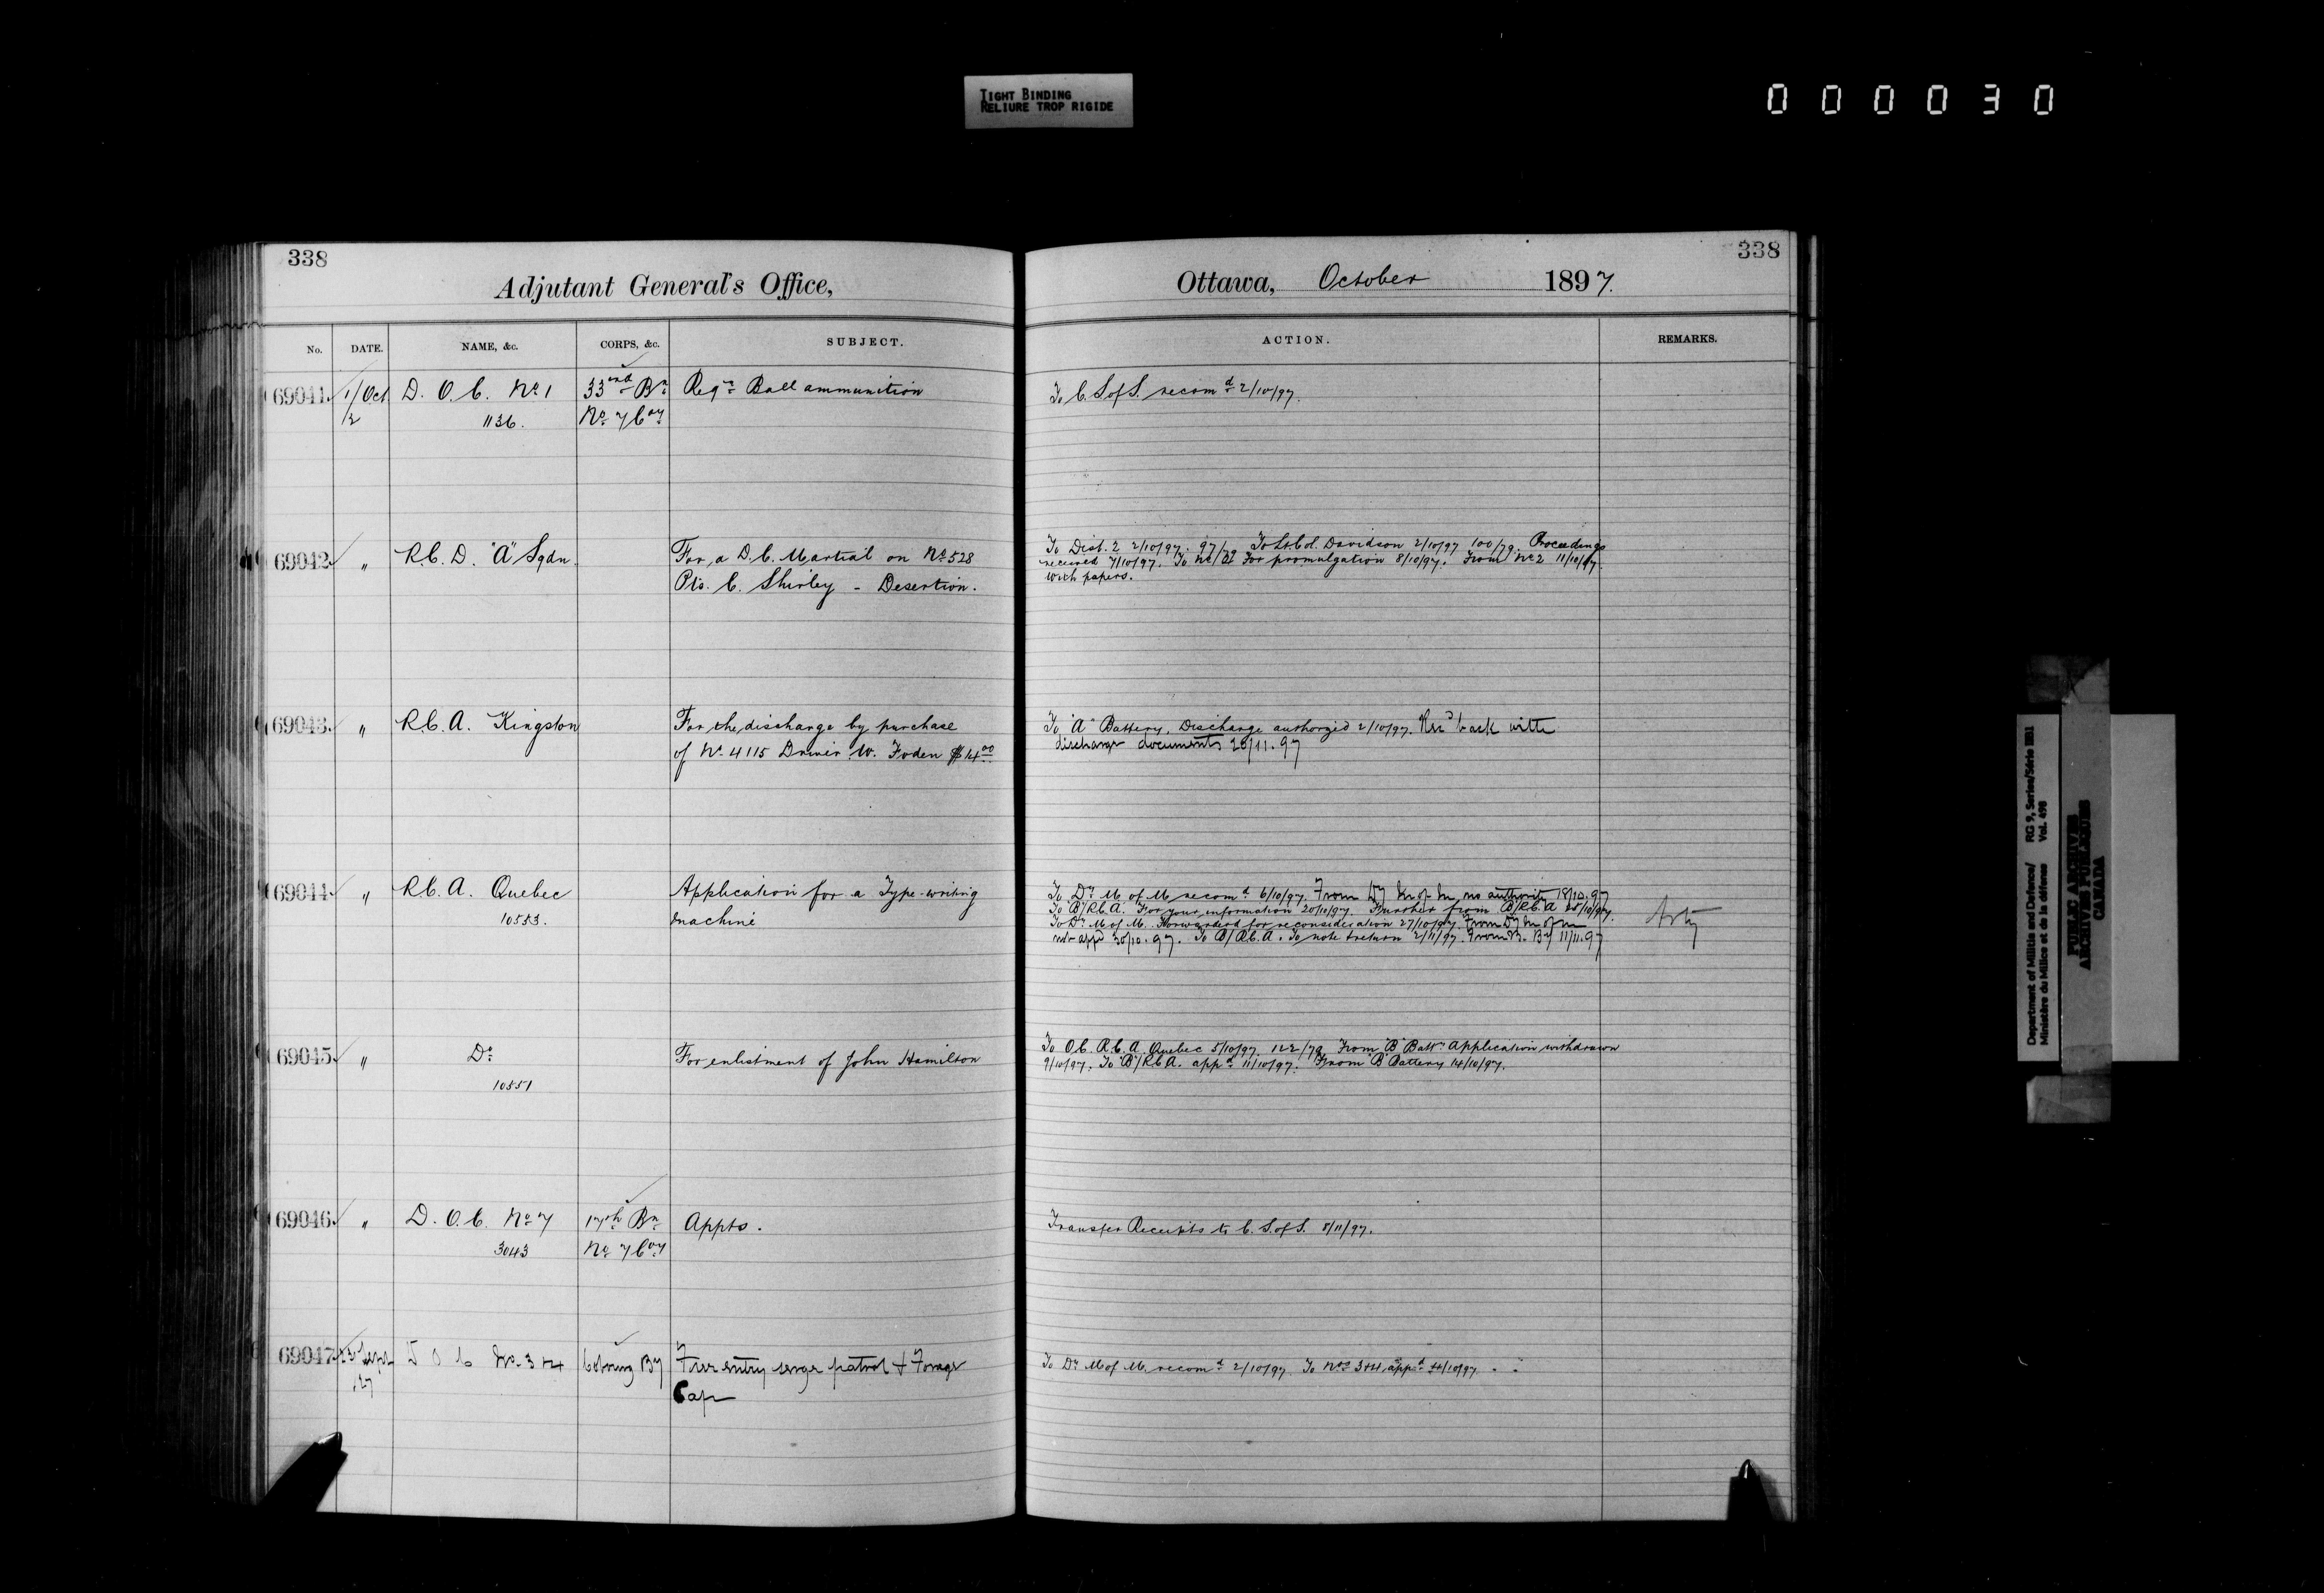 TIGHT BINDING
RELIURE TROP RIGIDE
000030
338
Adjutant General's Office,
No. DATE. NAME, &c. CORPS, &c. SUBJECT.
69041 1/Oct D. O. C. No 1 33rd Bn Reqn Ball ammunition
/2 1136. No 7 Coy
69042 " R.C.D. "A" Sqdn. For a D.C. Martial on No 528
Pte. C. Shirley - Desertion.
69043 " R.C.A. Kingston For the discharge by purchase
of No 4115 Driver W. Foden $14.00
69044 " R.C.A. Quebec Application for a Type-writing
10583. machine
69045 " Do For enlistment of John Hamilton
10851
69046 " D. O. C. No 7 17th Bn Appts.
3043 No 7 Coy
69047 Sept D O C No. 3 & 4 Cobourg By Free entry serge patrol & Forage
27 Cap
338
Ottawa, October 1897.
ACTION. REMARKS.
To C. S. of S. recomd 2/10/97.
To Dist. 2 2/10/97. 97/79 To Lt Col. Davidson 2/10/97 100/79. Proceedings
received 7/10/97. To No 2 For promulgation 8/10/97. From No 2 11/10/97.
with papers.
To "A" Battery. Discharge authorized 2/10/97. Recd back with
discharge documents 26/11.97
To Dy M of M recomd 6/10/97. From Dy M of M no authority 18/10.97
To B/R.C.A. For your information 20/10/97. Further from B/R.C.A 25/10/97.
To Dy M of M. Forwarded for reconsideration 27/10/97. From Dy M of M
not appd 30/10.97. To B/R.C.A. To note & return 2/11/97. From B. By 11/11.97
Arty
To O.C. R.C.A. Quebec 5/10/97. 122/79 From "B" Batty Application withdrawn
9/10/97. To "B"/R.C.A. appd 11/10/97. From "B" Battery 14/10/97.
Transfer Receipts to C. S. of S. 8/11/97.
To Dy M of M recomd 2/10/97. To Nos 3 & 4 appd 4/10/97.
Department of Militia and Defence/ RG 9, Series/Série IIB1
Ministère du Milice et de la défense Vol. 498
PUBLIC ARCHIVES
ARCHIVES PUBLIQUES
CANADA